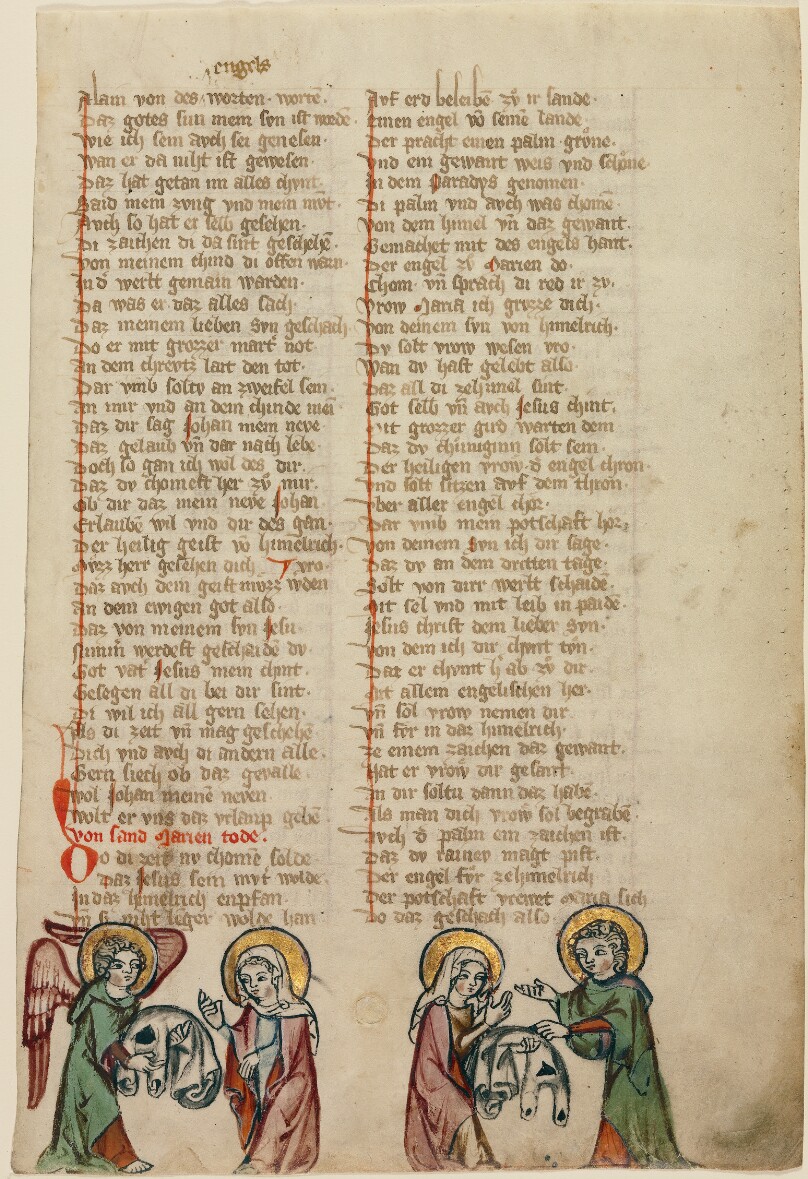 engels
Alain von des worten worte.
Daz gotes sun mein syn ist worde
Wie ich sein avch sei genesen.
Wan er da niht ist gewesen.
Daz hat getan im alles chvnt.
Said mein zvng vnd mein mvt.
Avch so hat er selb gesehen.
Di zaichen di da sint geschehē.
Von meinem chind di offen warn.
In d werlt gemain warden.
Da was er daz alles sach.
Daz meinem lieben syn geschach
Do er mit grozzer mart not.
An dem chrevtz lait den tot.
Dar vmb soltv an zweifel sein.
An mir vnd an dem chinde mei
Daz dir sag Johan mein neve
Daz gelaub vn̄ dar nach lebe.
Doch so gan ich wol des dir.
Daz dv chomest her zv mir.
Ob dir daz mein neve Johan.
Erlaubē wil vnd dir des gan.
Der heilig geist vō himelrich.
Mvzz herr gesehen dich vro.
Daz avch dem geist mvzz wden
An dem ewigen got also.
Daz von meinem syn Jesu.
nimm̄ werdest geschaidē dv.
Got vat Jesus mein chint.
Gesegen all di bei dir sint.
Di wil ich all gern sehen.
Als di zeit vn̄ mag geschehē
Dich vnd avch di andern alle.
Gern siech ob daz gevalle.
wol Johan meinē neven.
wolt er vns daz vrlaup gebē
Von sand Marien tode.
Do di zeit nv chomē solde
Daz Jesus sein mvt wolde.
In daz himelrich enpfan.
Vn̄ si niht leger wolde han
Avf erd beleibē zv ir sande.
Einen engel vō seinē lande.
Der pracht einen palm grvne.
Vnd ein gewant weis vnd schone
In dem Paradys genomen.
Di palm vnd avch was chomē.
Von dem himel vn̄ daz gewant.
Gemachet mit des engels hant.
Der engel zv Marien do.
Chom vn̄ sprach di red ir zv.
Vrow Maria ich grvzze dich.
Von deinem syn von himelrich.
Dv solt vrow wesen vro.
Wan dv hast gelebt also.
Daz all di zehimel sint.
Got selb vn̄ avch Jesus chint.
Mit grozzer gird warten dein
Daz dv chvniginn solt sein.
Der heiligen vrow d engel chron.
Vnd solt sitzen avf dem thron.
Vber aller engel chor.
Dar vmb mein potschaft hor.
Von deinem Syn ich dir sage.
Daz dv an dem dritten tage.
Solt von dirr werlt schaidē.
Mit sel vnd mit leib in paidē.
Jesus christ dem lieber syn.
Von dem ich dir chvnt tvn.
Daz er chvmt h ab zv dir.
Mit allem engelischen her.
Vn̄ sol vrow nemen dir
Vn̄ fvr in daz himelrich.
Ze einem zaichen daz gewant.
Hat er vrow dir gesant.
An dir soltu dann daz habē.
Als man dich vrow sol begrabē.
Avch d palm ein zaichen ist.
Daz dv rainev magt pist.
Der engel fvr zehimelrich
Der potschaft vrewet Maria sich
Do daz geschach also.